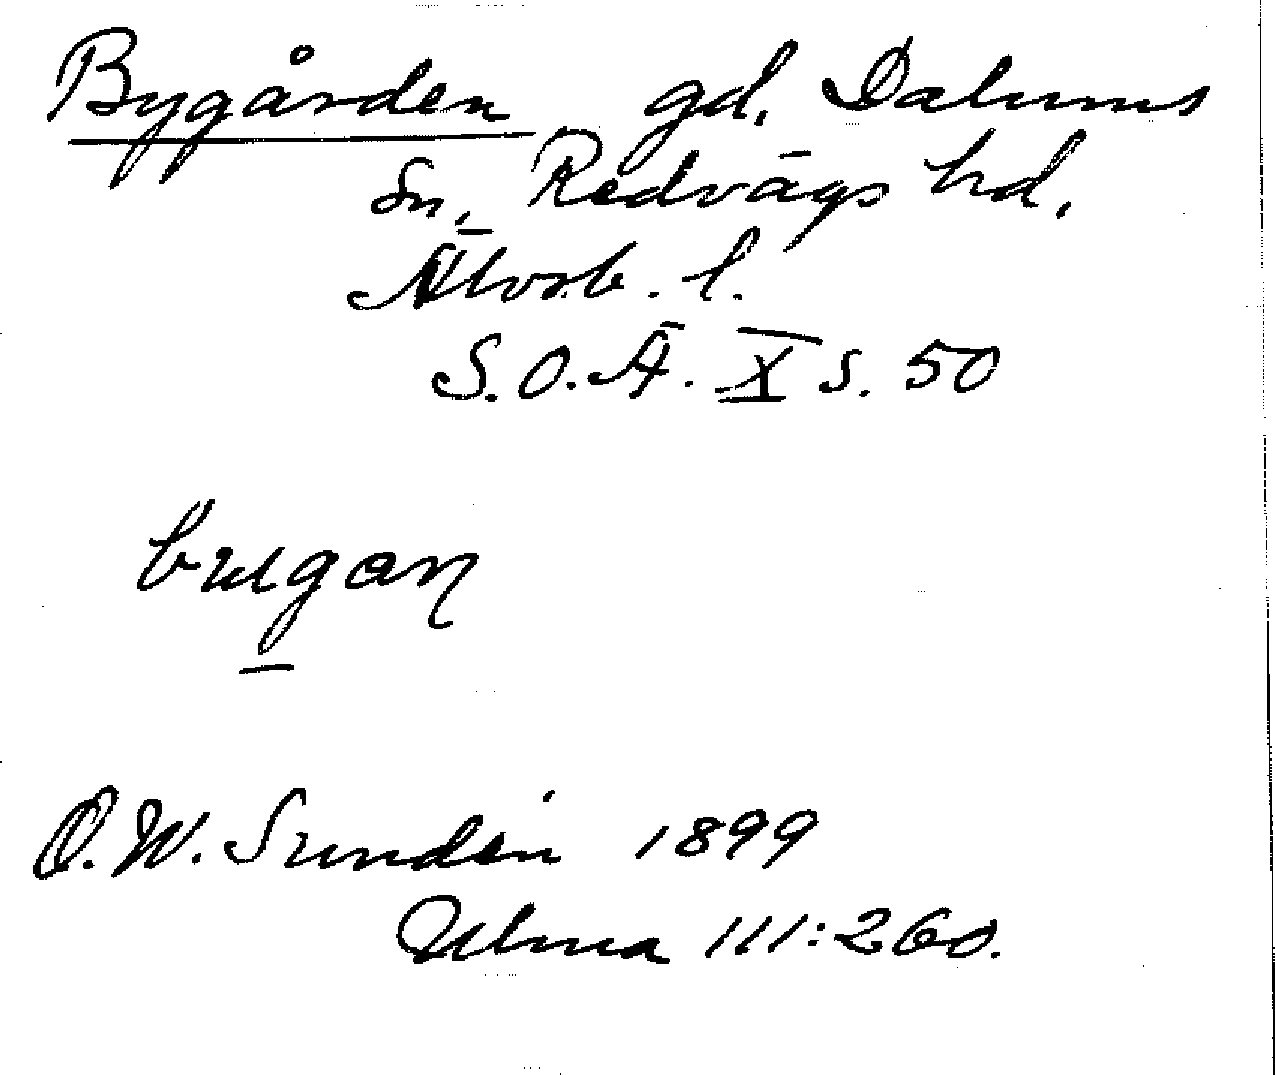 Bygården gd. Dalums
sn, Redvägs hd,
Älvsb. l.
S.O.Ä. X s. 50
O.W. Sundén 1899
Ulma 111:260.